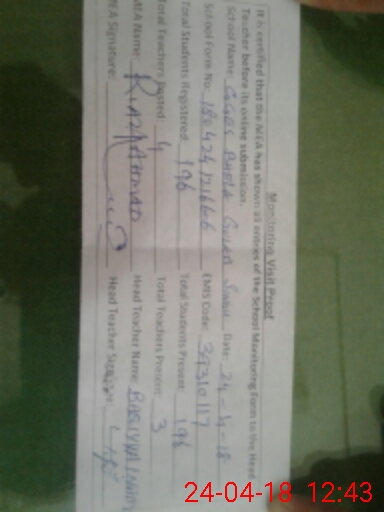 Monitoring Visit Proof
It is certified that the MEA has shown all entries of the School Monitoring Form to the Head
Teacher before its online submission.
School Name: GGPS Date: 24-4-18
School Form No: EMIS Code: 37310117
Total Students Registered: 196 Total Students Present: 196
Total Teachers Posted: 4 Total Teachers Present: 3
MEA Name: RIAZ AHMAD Head Teacher Name:
MEA Signature: Head Teacher Signature:
24-04-18 12:43